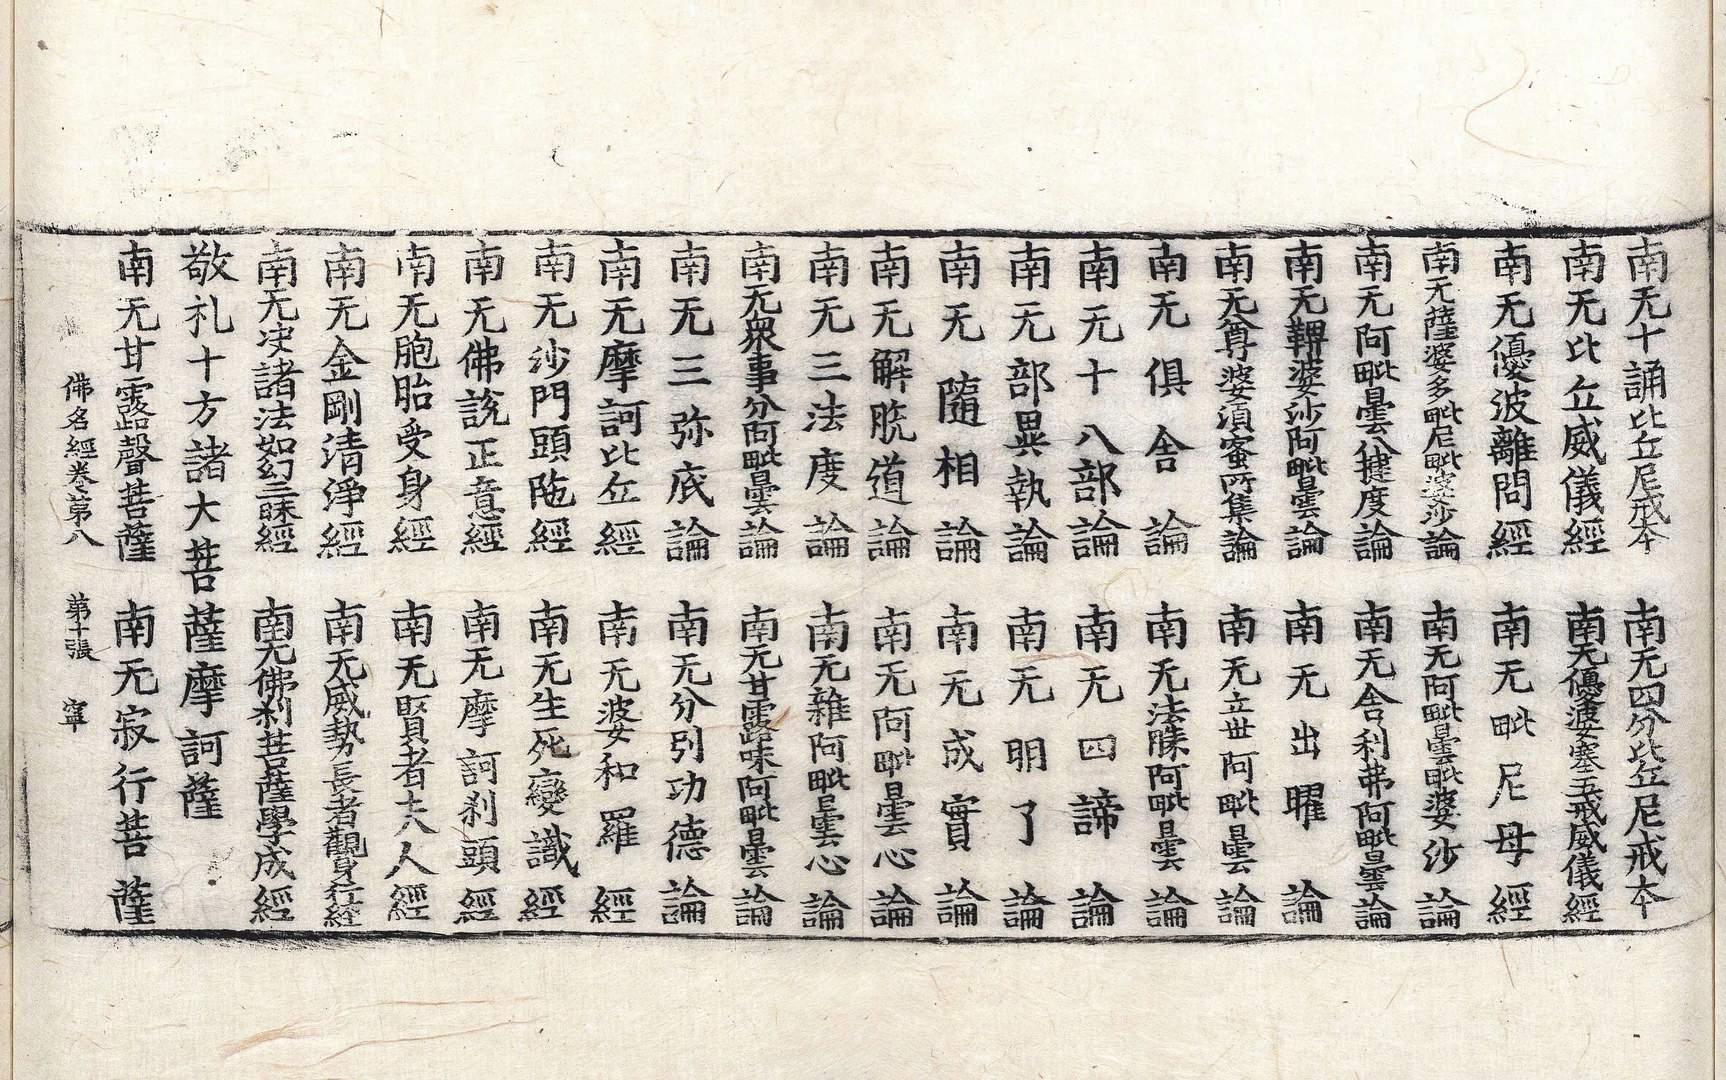 南无十誦比丘尼戒本 南无四分比丘尼戒本
南无比丘威儀經 南无優婆塞五戒威儀經
南无優波離問經 南无毗尼母經
南无薩婆多毗尼毗婆沙論 南无阿毗曇毗婆沙論
南无阿毗曇八揵度論 南无舍利弗阿毗曇論
南无鞞婆沙阿毗曇論 南无出曜論
南无尊婆湏蜜所集論 南无立世阿毗曇論
南无俱舍論 南无法勝阿毗曇論
南无十八部論 南无四諦論
南无部異執論 南无明了論
南无隨相論 南无成實論
南无解脱道論 南无阿毗曇心論
南无三法度論 南无雜阿毗曇心論
南无衆事分阿毗曇論 南无甘露味阿毗曇論
南无三弥底論 南无分別功德論
南无摩訶比丘經 南无婆和羅經
南无沙門頭陁經 南无生死變識經
南无佛說正意經 南无摩訶剎頭經
南无胞胎受身經 南无賢者夫人經
南无金剛清淨經 南无威勢長者觀身行經
南无决諸法如幻三昧經 南无佛剎菩薩學成經
敬礼十方諸大菩薩摩訶薩
南无甘露聲菩薩 南无寂行菩薩
佛名經卷第八 第十張 寧